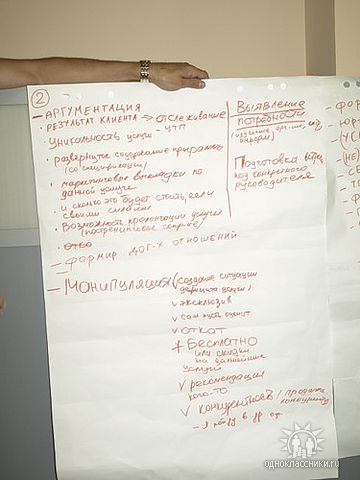 2
— АРГУМЕНТАЦИЯ
• РЕЗУЛЬТАТ КЛИЕНТА → отслеживание
• Уникальность услуги - УТП
• развернутое содержание программы
(со спецификации)
• маркетинговые выкладки по
данной услуге
• и сколько это будет стоить, если
своими силами
• Возможность пролонгации услуги
(посттренинговое сопров)
— формир дог-х отношений
— Манипуляция (создание ситуации
дефицита услуги)
v эксклюзив
v сам пусть оценит
v откат
+ Бесплатно
или скидки
на дальнейшие
услуги
v рекомендации
кого-то
v конкурентность / продажа
конкуренту
- я пойду в др
Выявление
потребности
(изучение орг-ии,
информ)
Подготовка встреч
под конкретного
руководителя
— ФОР
одноклассники.ru